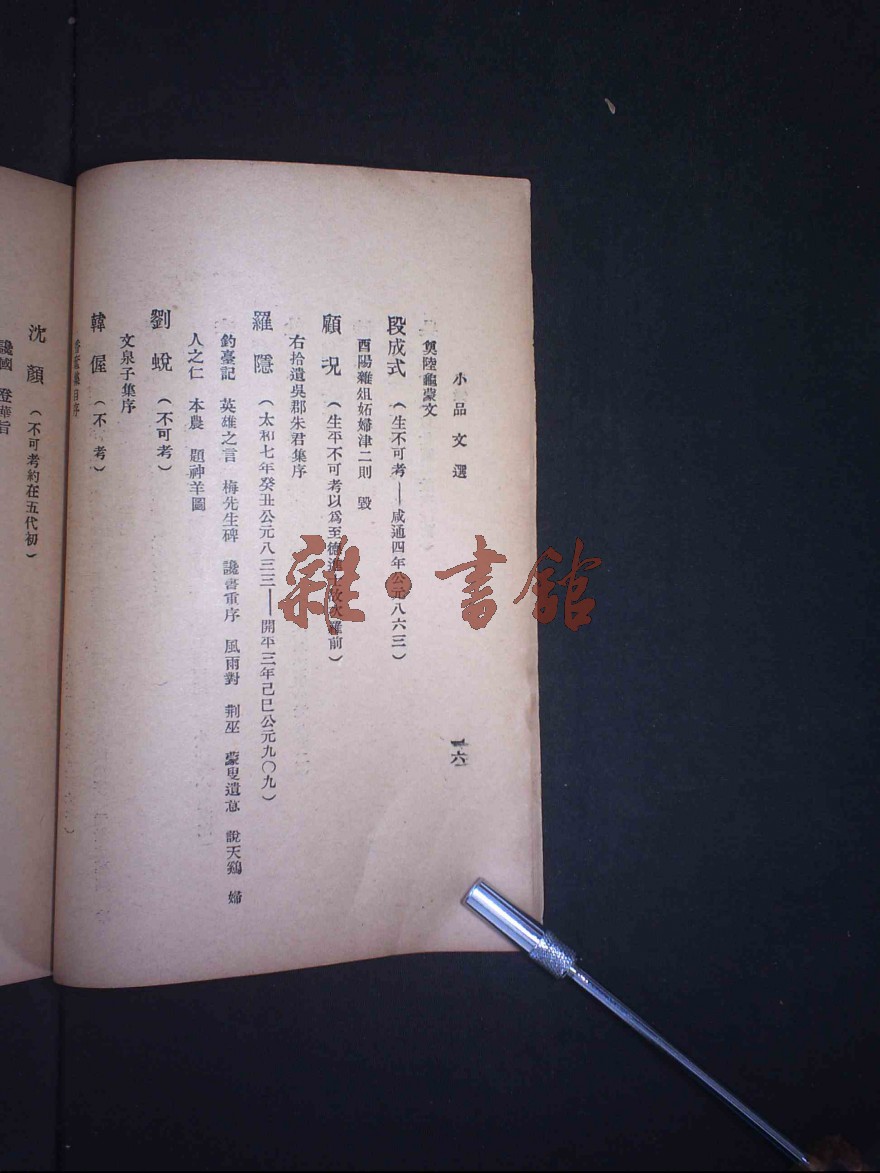 小品文選
一六
與陸龜蒙文
段成式 (生不可考——咸通四年公元八六三)
酉陽雜俎妬婦津二則 毀
顧況 (生平不可考以爲至德進士故次羅前)
右拾遺吳郡朱君集序
羅隱 (太和七年癸丑公元八三三——開平三年己巳公元九〇九)
釣臺記 英雄之言 梅先生碑 讒書重序 風雨對 荆巫 蒙叟遺意 說天鷄 婦
人之仁 本農 題神羊圖
劉蛻 (不可考)
文泉子集序
韓偓 (不 考)
自序
沈顏 (不可考約在五代初)
讒國 登華旨
雜·書館